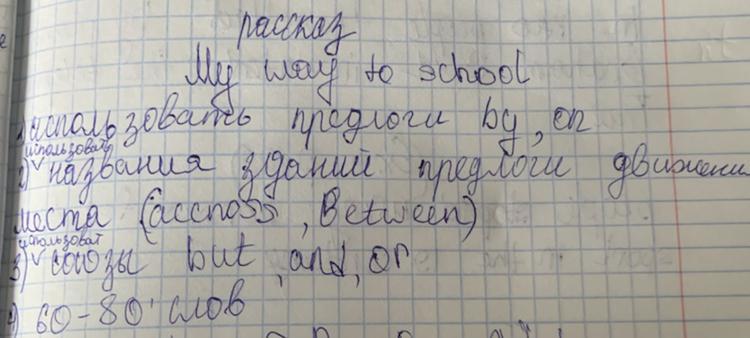 рассказ
My way to school
1) использовать предлоги by, on
использовать
2) названия зданий предлоги движени
места (accposs, Between)
использоват
3) союзы but, and, or
4) 60-80 слов